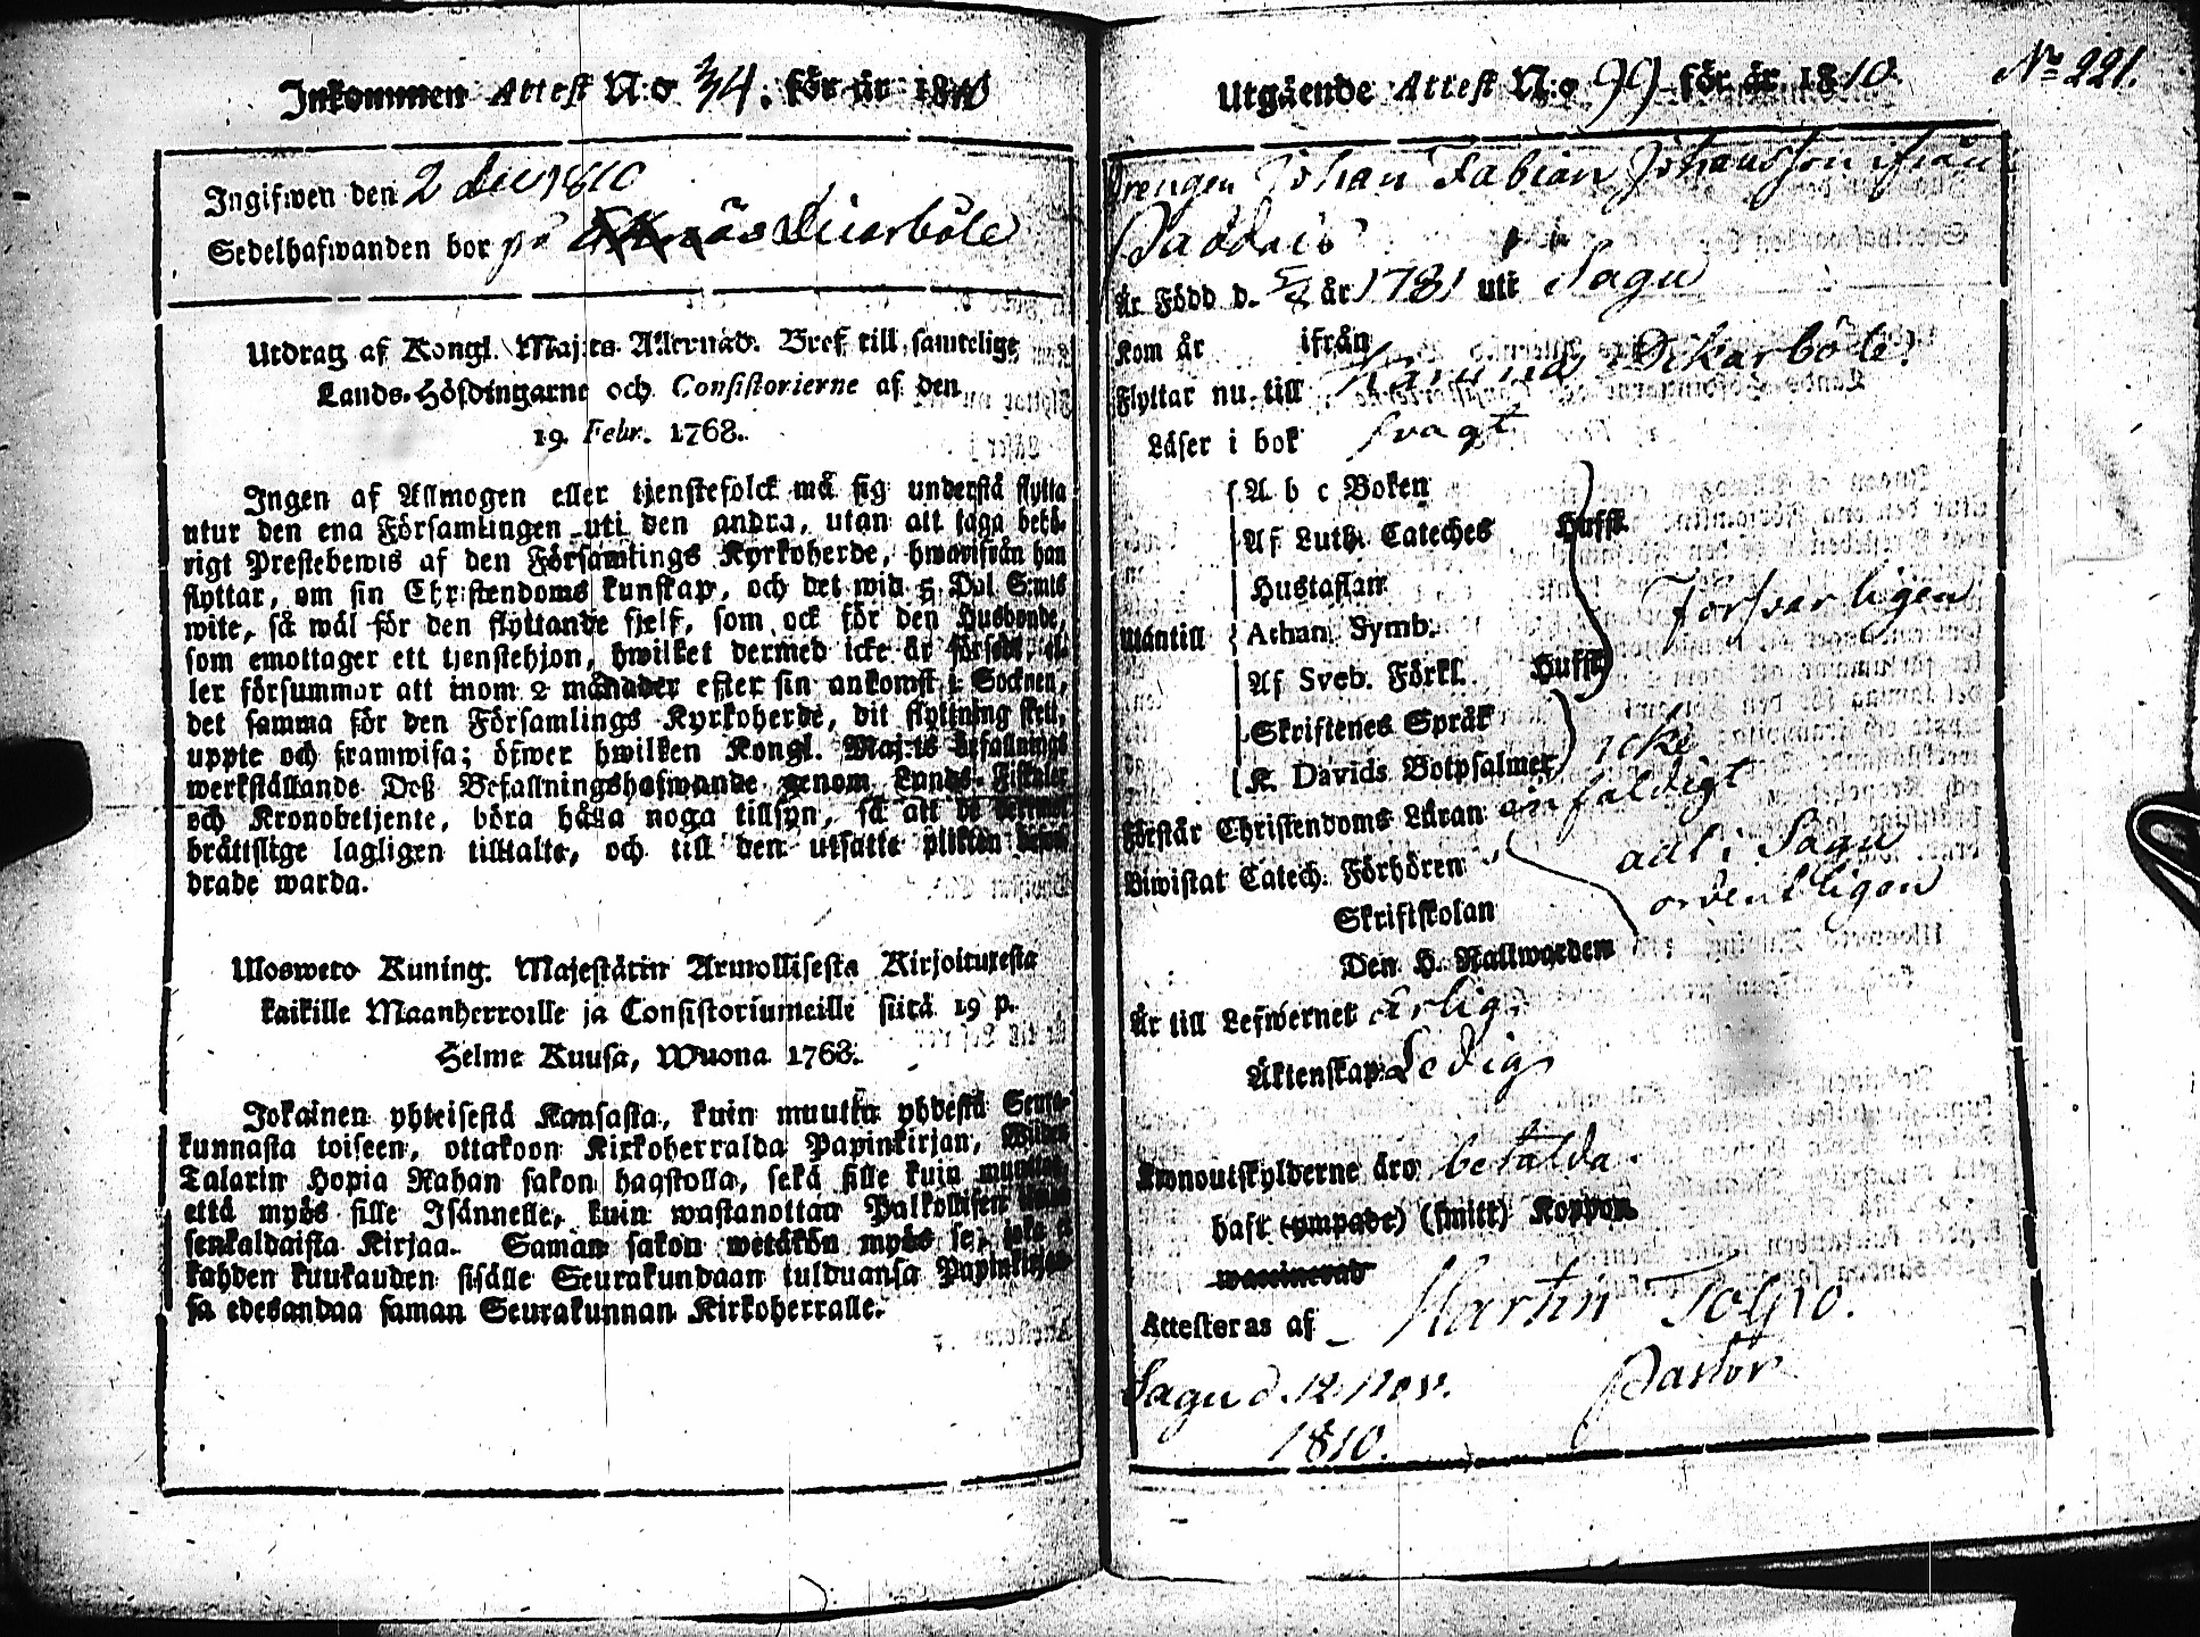 Inkommen Attest N:o 34. för år 1810
Ingifwen den 2 1810
Sedelhafwanden bor på
Utdrag af Kongl. Maj:ts Allernåd. Bref till samtelige
Lands-Höfdingarne och Consistorierne af den
19. Febr. 1768.
Ingen af Allmogen eller tjenstefolck må sig understå flytta
utur den ena Församlingen uti den andra, utan att taga behö-
rigt Prestebewis af den Församlings Kyrkoherde, hwarifrån han
flyttar, om sin Christendoms kunskap, och det wid 5 Dal S:mts
wite, så wäl för den flyttande sjelf, som ock för den Husbonde,
som emottager ett tjenstehjon, hwilket dermed icke är försedt, el-
ler försummar att inom 2 månader efter sin ankomst i Socknen,
det samma för den Församlings Kyrkoherde, dit flyttning skett,
uppte och framwisa; öfwer hwilken Kongl. Maj:ts befallnings
werkställande Deß Befallningshafwande genom Lands-Fiskaler
och Kronobetjente, böra hålla noga tillsyn, så att de
bråttslige lagligen tilltalte, och till den utsatte plikten
drade warda.
Ulosweto Kuning. Majestätin Armollisesta Kirjoituxesta
kaikille Maanherroille ja Consistoriumeille siitä 19 p.
Helme Kuusa, Wuona 1768.
Jokainen yhteisestä Kansasta, kuin muutta yhdestä Seura-
kunnasta toiseen, ottakoon Kirkoherralda Papinkirjan, Wiiden
Talarin Hopia Rahan sakon haastolla, sekä sille kuin muuttaa,
että myös sille Isännelle, kuin wastanottaa Palkollisen
senkaldaista Kirjaa. Saman sakon wetäkön myös se, joka ei
kahden kuukauden sisälle Seurakundaan tulduansa Papinkirjan-
sa edesandaa saman Seurakunnan Kirkoherralle.
Utgående Attest N:o 99 för år 1810. No 221.
Drengen Johan Fabian Johansson ifrån
Paddais
Är Född d. 5/8 år 1781 uti Sagu
Kom år ifrån
Flyttar nu till Dikarböle.
Läser i bok svagt
A b c Boken
Af Luth. Cateches Huffk.
Hustaflan
Utantill Athan. Symb. Försvarligen
Af Sveb. Förkl. Huffk
Skriftenes Språk
K. Davids Botpsalmer icke
Förstår Christendoms Läran enfaldigt
Biwistat Catech. Förhören allt i Sagu
Skriftskolan ordentligen
Den H. Nattwarden
Är till Lefwernet ärlig.
Äktenskap: Ledig
Kronoutskylderne äro betalda.
haft (ympade) (smitt) Koppor
Attesteras af Martin Tolpo.
Sagu d. 12. Nov. Pastor
1810.